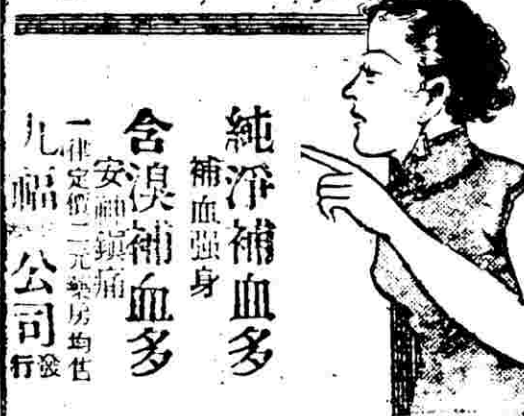 純淨補血多
補血强身
含溴補血多
安神鎮痛
一律定價二元藥房均售
九福公司發行